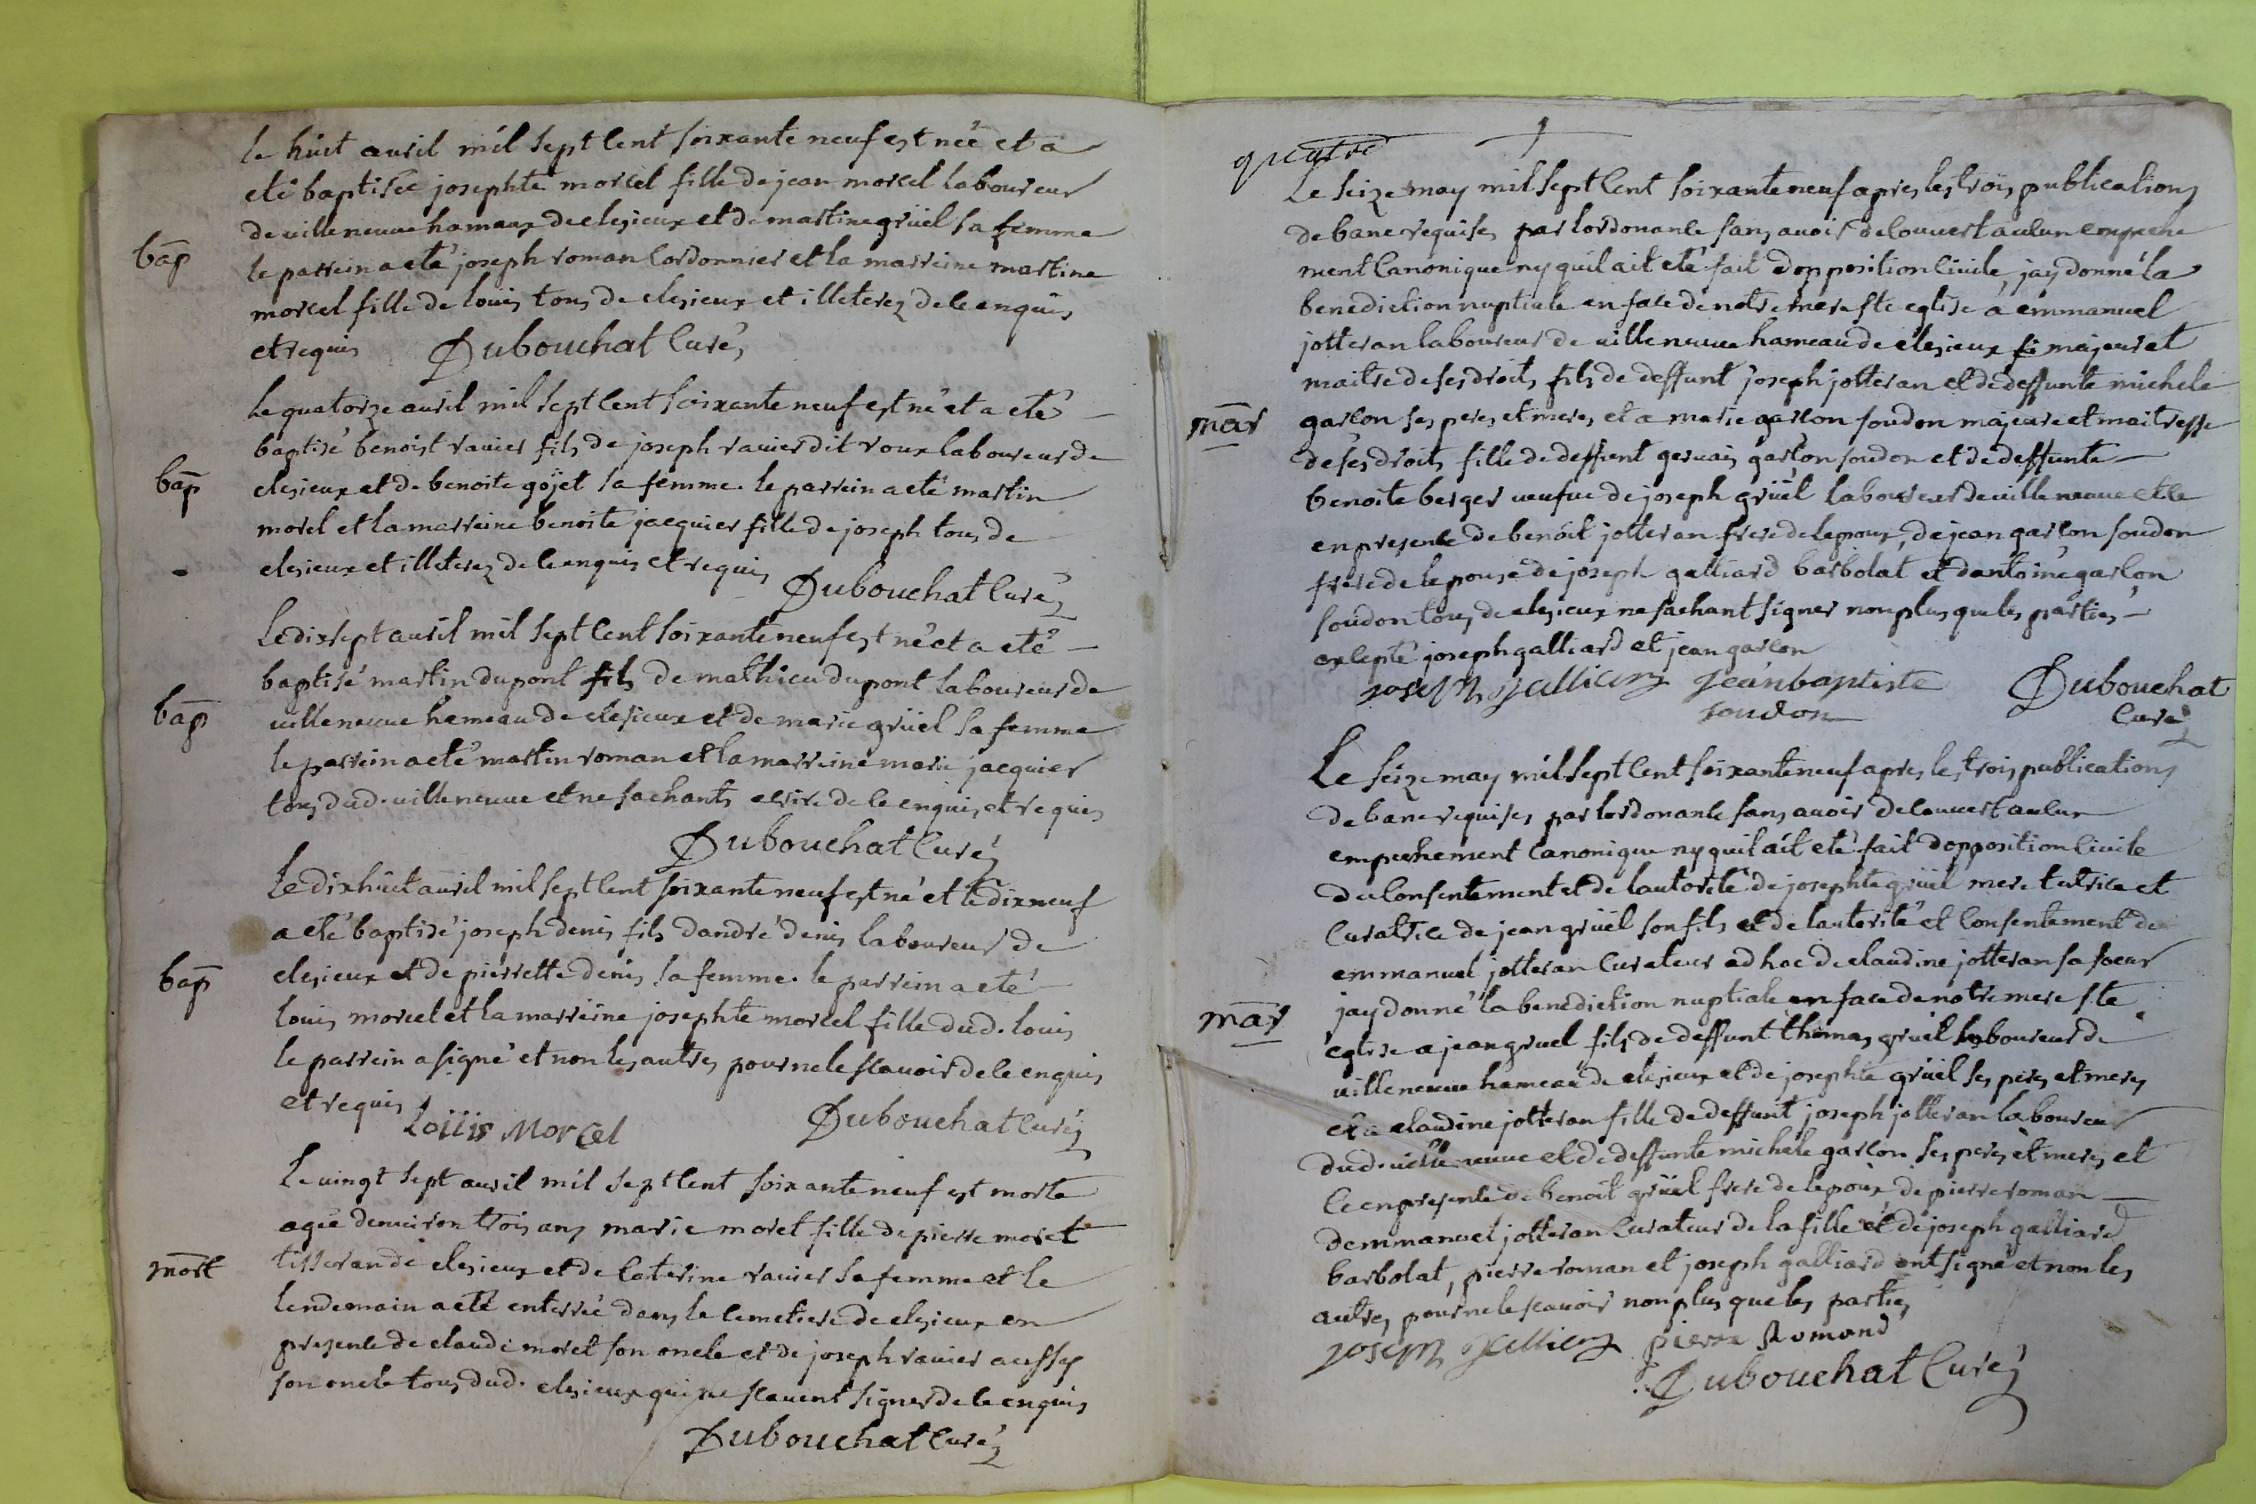 le huit avril mil sept cent soixante neuf est née et a
eté baptisée josephte morcel fille de jean morcel laboureur
de villeneuve hamaux de clesieux et de martine grüel sa femme
bap
le parrein a eté joseph roman cordonnier et la marreine martine
morcel fille de louis tous de clesieux et illeterez de ce enquis
et requis Dubouchat Curé
le quatorze avril mil sept cent soixante neuf est né et a eté
baptisé benoist ravier fils de joseph ravier dit roux laboureur de
bap
clesieux et de benoite gojet sa femme. le parrein a eté martin
morel et la marreine benoite jacquier fille de joseph tous de
clesieux et illeterez de ce enquis et requis Dubouchat Curé
Le dix sept avril mil sept cent soixante neuf est né et a eté
baptisé martin dupont fils de mathieu dupont laboureur de
bap
villeneuve hameau de clesieux et de marie grüel sa femme
le parrein a eté martin roman et la marreine marie jacquier
tous dud. villeneuve et ne sachants ecrire de ce enquis et requis
Dubouchat Curé
Le dix huit avril mil sept cent soixante neuf est né et le dix neuf
a eté baptisé joseph denis fils dandré denis laboureur de
bap
clesieux et de pierrette denis sa femme. le parrein a eté
louis morcel et la marreine josephte morcel fille dud. louis
le parrein a signé et non les autres pour ne le scavoir de ce enquis
et requis
Loüis Morcel Dubouchat Curé
Le vingt sept avril mil sept cent soixante neuf est morte
agée denviron trois ans marie moret fille de pierre moret
mort
tisseran de clesieux et de caterine ravier sa femme et le
lendemain a eté enterrée dans le cemetiere de clesieux en
presence de claude moret son oncle et de joseph ravier aussy
son oncle tous dud. clesieux qui ne scavent signer de ce enquis
Dubouchat Curé
quatre
Le seize may mil sept cent soixante neuf apres les trois publications
de banc requises par lordonance sans avoir decouvert aucun empeche
ment canonique ny quil ait eté fait dopposition civile, jay donné la
benediction nuptiale en face de notre mere ste eglise a emmanuel
jotteran laboureur de villeneuve hameau de clesieux majeur et
maitre de ses droits fils de deffunt joseph jotteran et de deffunte michele
mar
garcon ses peres et meres, et a marie garcon soudon majeure et maitresse
de ses droits fille de deffunt gervais garcon soudon et de deffunte
benoite berger veufve de joseph grüel laboureur de villeneuve et ce
en presence de benoit jotteran frere de lepoux, de jean garcon soudon
frere de lepouse de joseph galliard barbolat et dantoine garcon
soudon tous de clesieux ne sachant signer non plus que les parties
excepté joseph galliard et jean garcon
joseph galliard jean baptiste Dubouchat
soudon Curé
Le seize may mil sept cent soixante neuf apres les trois publications
de banc requises par lordonance sans avoir decouvert aucun
empechement canonique ny quil ait eté fait dopposition civile
du consentement et de lautorité de josephte grüel mere tutrice et
curatrice de jean grüel son fils et de lautorité et consentement de
emmanuel jotteran curateur ad hoc de claudine jotteran sa soeur
mar
jay donné la benediction nuptiale en face de notre mere ste
eglise a jean gruel fils de deffunt thomas grüel laboureur de
villeneuve hameau de clesieux et de josephte grüel ses peres et meres
et a claudine jotteran fille de deffunt joseph jotteran laboureur
dud. villeneuve et de deffunte michele garcon ses peres et meres et
ce en presence de benoit grüel frere de lepoux de pierre roman
demmanuel jotteran curateur de la fille et de joseph galliard
barbolat, pierre roman et joseph galliard ont signé et non les
autres pour ne le scavoir non plus que les parties
joseph galliard pierre Romand
Dubouchat Curé